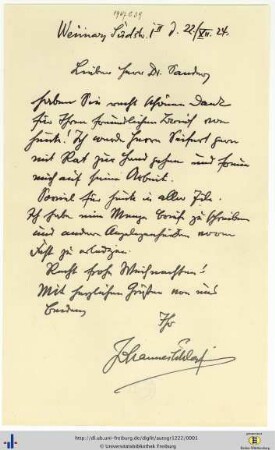 Weimar, Südstr. d. 22/XII. 24.
Lieber Herr Dr. Sander,
haben Sie recht schönen Dank
für Ihren freundlichen Brief von
heute! Ich werde Herrn Seifert gern
mit Rat zur Hand gehen und freue
mich auf seine Arbeit.
Soviel für heute in aller Eile.
Ich habe eine Menge Briefe zu schreiben
und andere Angelegenheiten vorm
Fest zu erledigen.
Recht frohe Weihnachten!
Mit herzlichen Grüßen von uns
beiden
Ihr
Johannes Schlaf
http://dl.ub.uni-freiburg.de/diglit/autogr1222/0001
© Universitätsbibliothek Freiburg